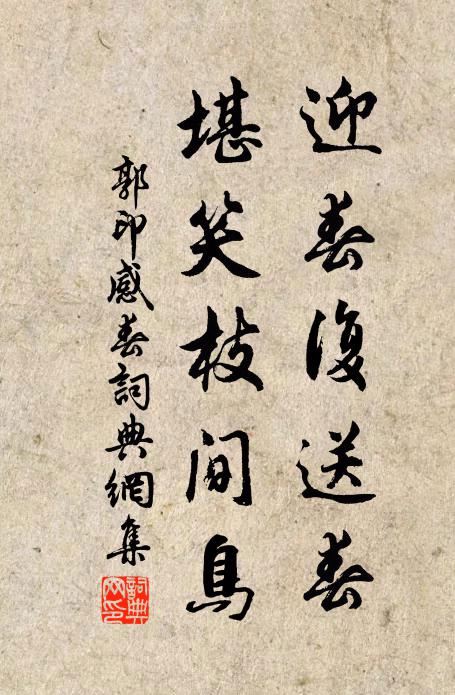 迎春復送春
堪笑枝間鳥
郭印感春詞典網集
詞典
网印